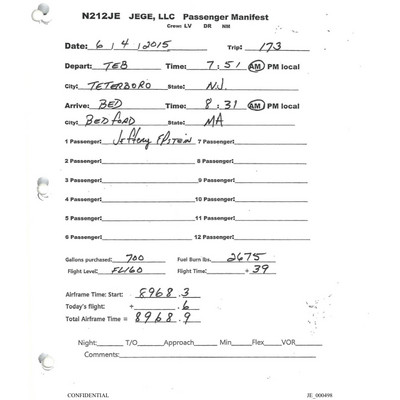 N212JE JEGE, LLC Passenger Manifest
Crew: LV DR NM
Date: 6/4/2015 Trip: 173
Depart: TEB Time: 7:51 AM PM local
City: TETERBORO State: N.J.
Arrive: BED Time: 8:31 AM PM local
City: BEDFORD State: MA
1 Passenger: Jeffery EPSTEIN 7 Passenger:
2 Passenger: 8 Passenger:
3 Passenger: 9 Passenger:
4 Passenger: 10 Passenger:
5 Passenger: 11 Passenger:
6 Passenger: 12 Passenger:
Gallons purchased: 700 Fuel Burn lbs. 2675
Flight Level: FL160 Flight Time: + 39
Airframe Time: Start: 8968.3
Today's flight: + .6
Total Airframe Time = 8968.9
Night: T/O Approach Min Flex VOR
Comments:
CONFIDENTIAL JE_000498